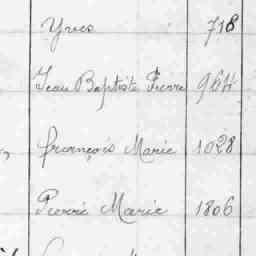 Yves 718
Jean Baptiste Pierre 964
françois Marie 1028
Pierre Marie 1806